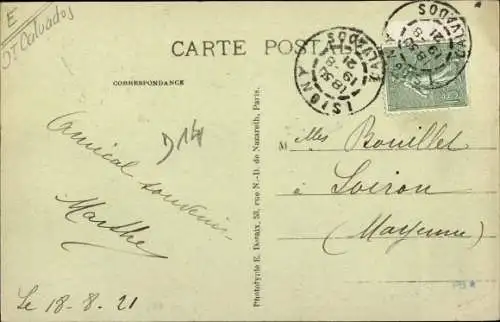 E
Dt Calvados
CARTE POSTALE
CORRESPONDANCE
D14
Amical souvenir
Marthe
Le 18-8.21
Phototypie E. Dorsix, 58, rue N.-D. de Nazareth, Paris.
ISIGNY
CALVADOS
18 50
19-8
21
CALVADOS
18 50
19-8
21
M lles Bouillet
à Loiron
(Mayenne)